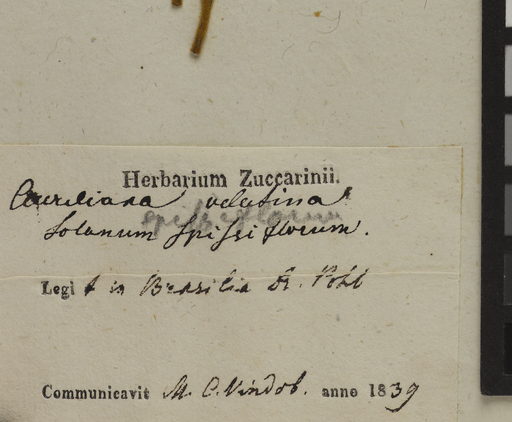 Herbarium Zuccarinii.
Aureliana velutina
spissiflorum
Solanum spissiflorum.
Legit in Brasilia Dr. Pohl
Communicavit M. C. Vindob. anno 1839